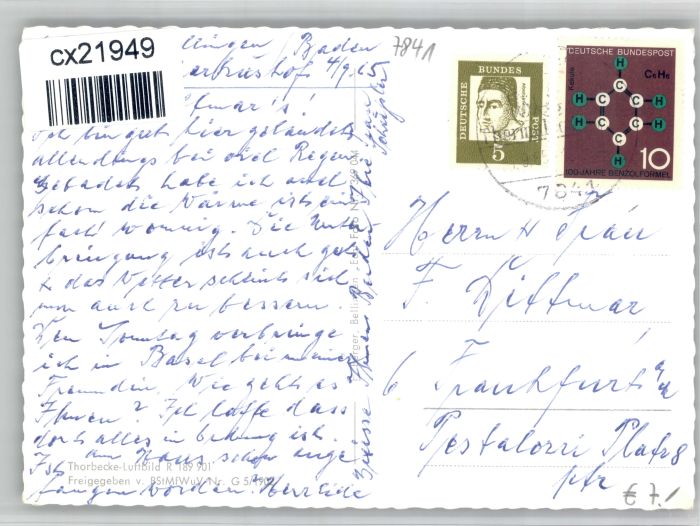 cx21949
7841
llingen / Baden
4/9.65
ich bin gut hier gelandet
allerdings bei viel Regen
Gebadet habe ich auch
schon die Wärme ist ein
fach wonnig. Die Unter
bringung ist auch gut
& das Wetter scheint sich
nun auch zu bessern.
Den Sonntag verbringe
ich in Basel bei meiner
Freundin. Wie geht es
Ihnen? Ich hoffe dass
dort alles in Ordnung ist.
Ist am Haus schon ange
fangen worden. Herzliche
Grüsse Ihnen Beiden Ihre
Thorbecke-Luftbild R 189 901
Freigegeben v. BStMfWuV Nr. G 5/
DEUTSCHE BUNDESPOST
DEUTSCHE BUNDES POST
5
Kekulé
C₆H₆
H
H C C H
C C
H C C H
H
10
100 JAHRE BENZOLFORMEL
7841
Herrn & Frau
F. Dittmar
6 Frankfurt a/M
Pestalozzi Platz 8
ptr
€ 7,-